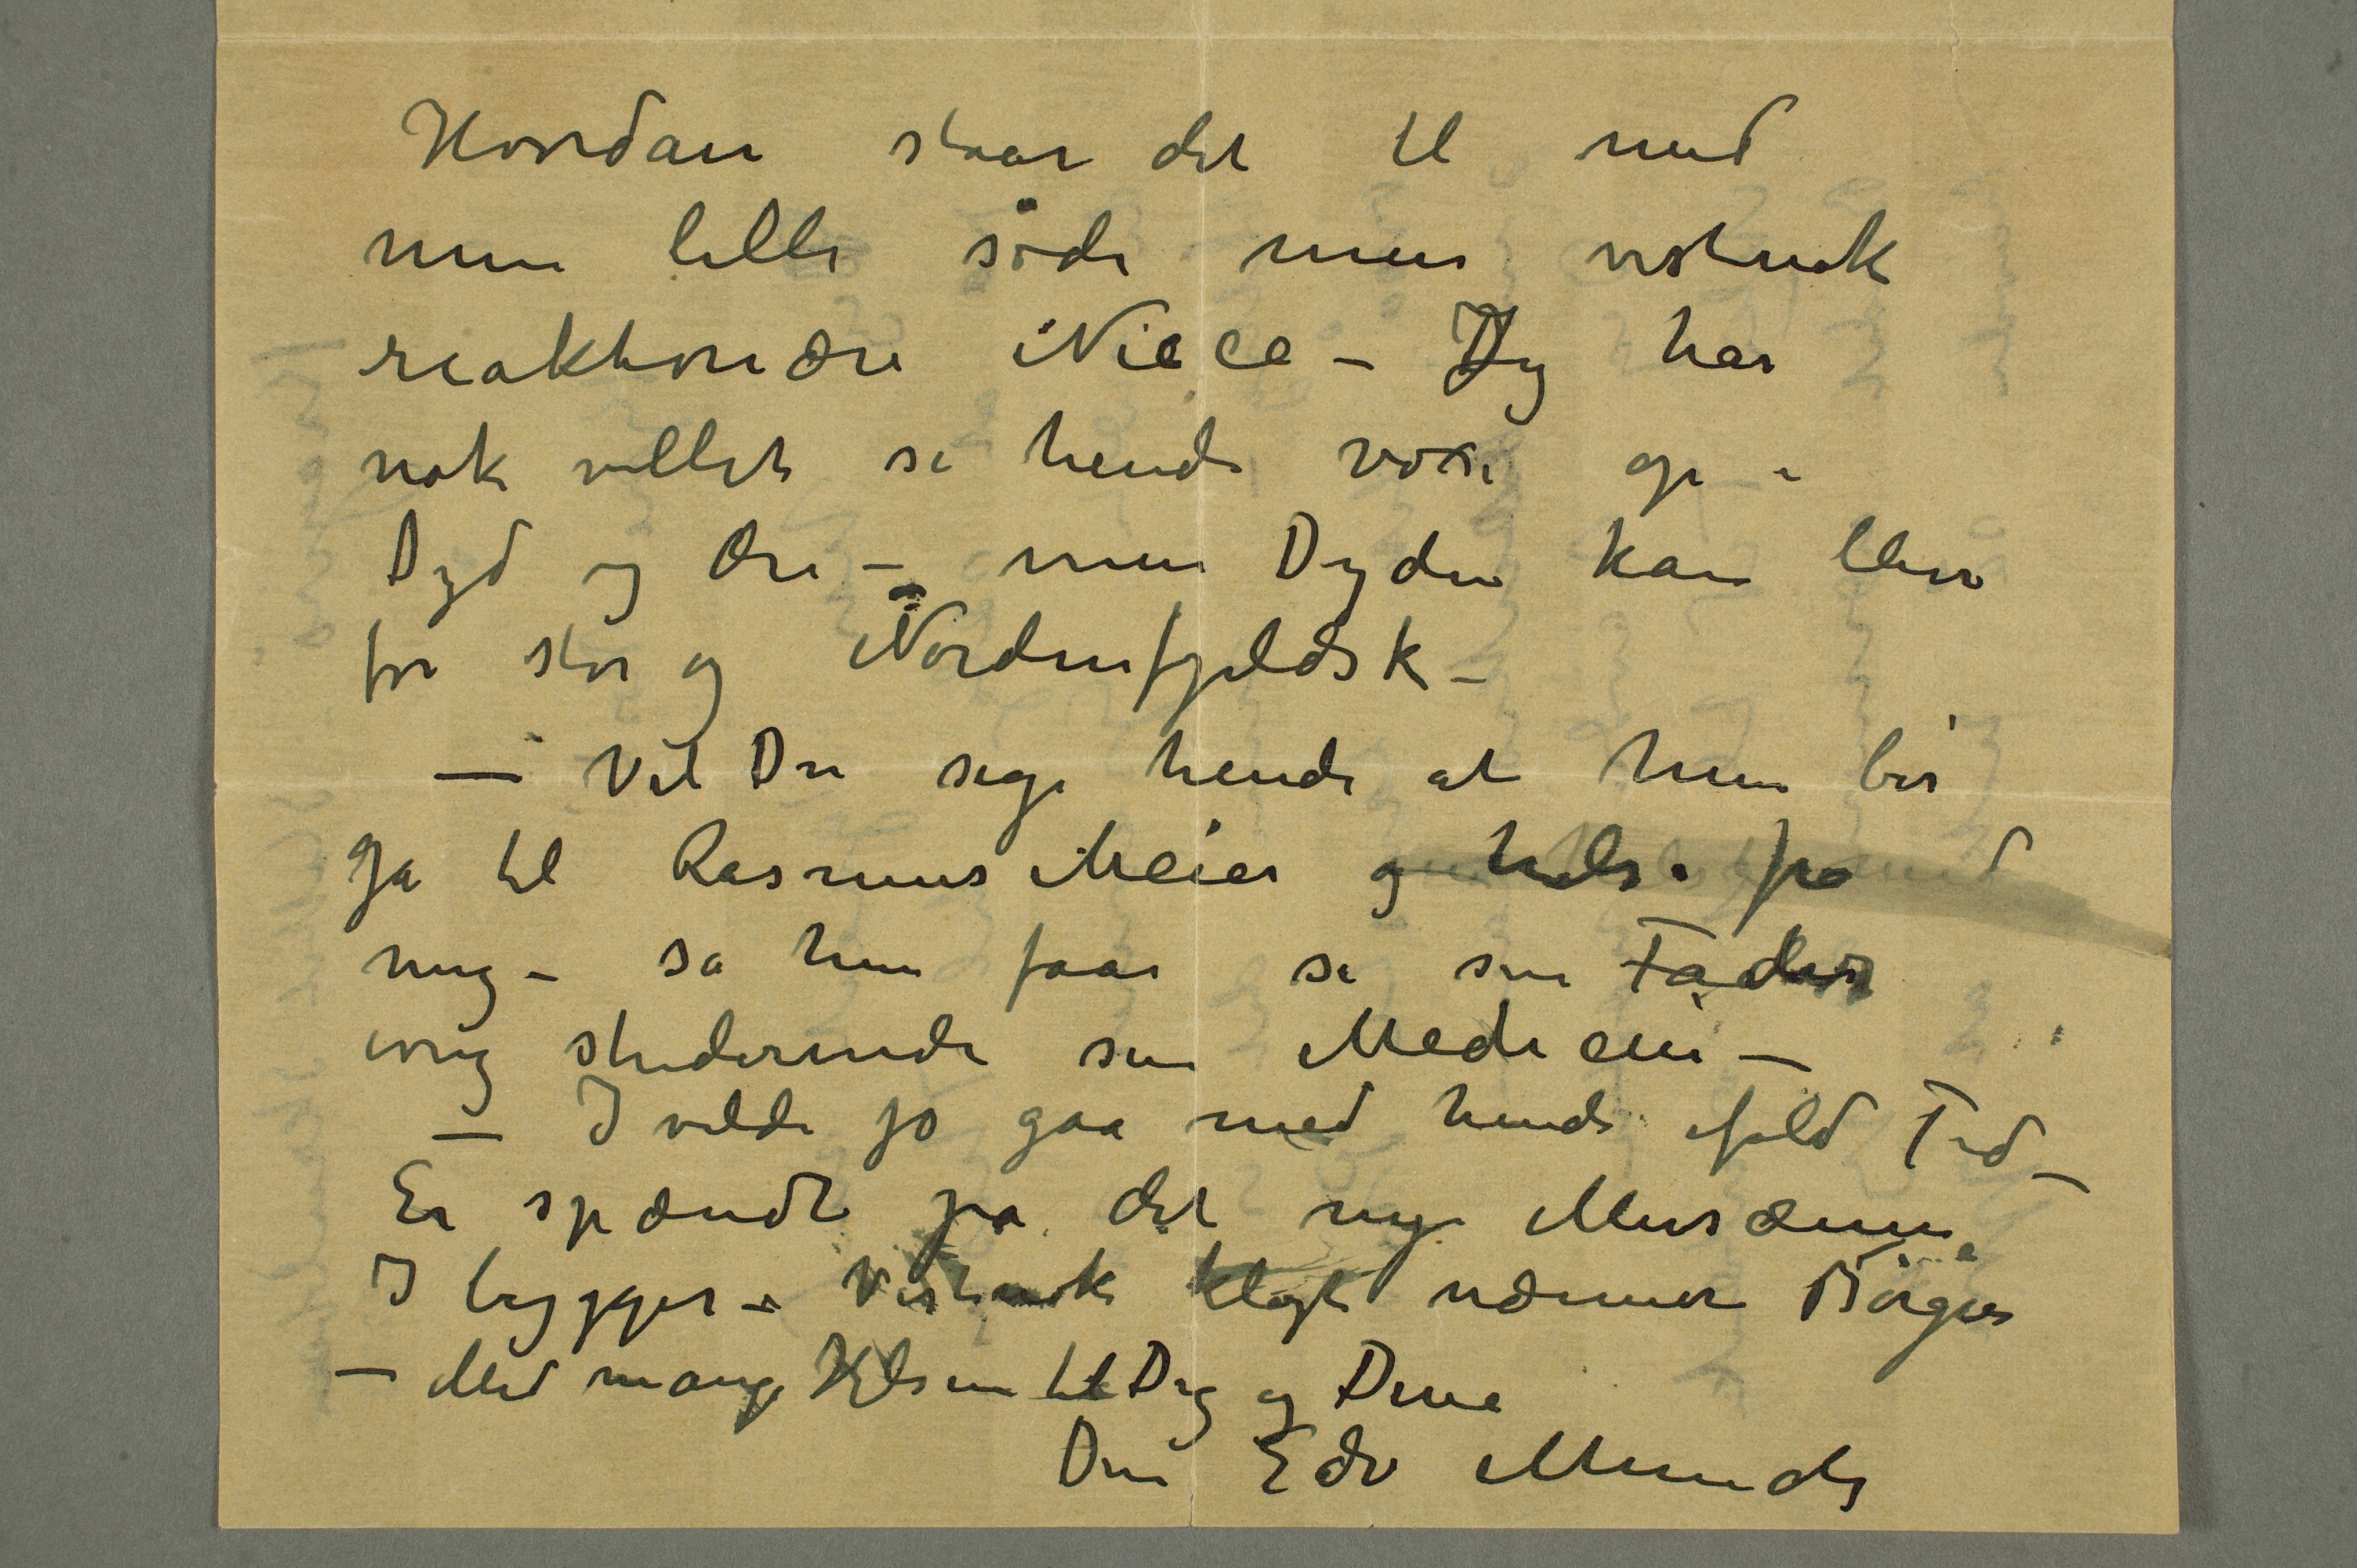 Hvordan staar det til med
min lille söde men vistnok
reaktionære Niece – Jeg har
nok villet se hende voxe op i
Dyd og Ære – men Dyden kan blive
for stor og Nordenfjeldsk –
— Vil Du sige hende at hun bör
gå til Rasmus Meier og hilse fra
mig – så hun faar se sin Fader
ivrig studerende sin Medicin –
– I vilde jo gaa med hende ifald Tid –
Er spændt på det nye Musæum
I bygger – Vistnok klogt nærmere Börgen
– Med mange Hilsen til Dig og Dine
Din Edv Munch